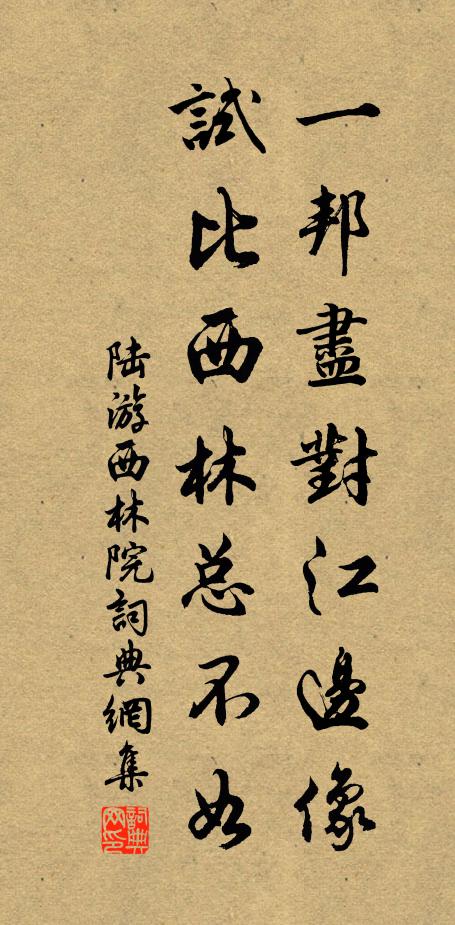 一邦盡對江邊像
試比西林总不如
陆游西林院詞典網集
詞典网印